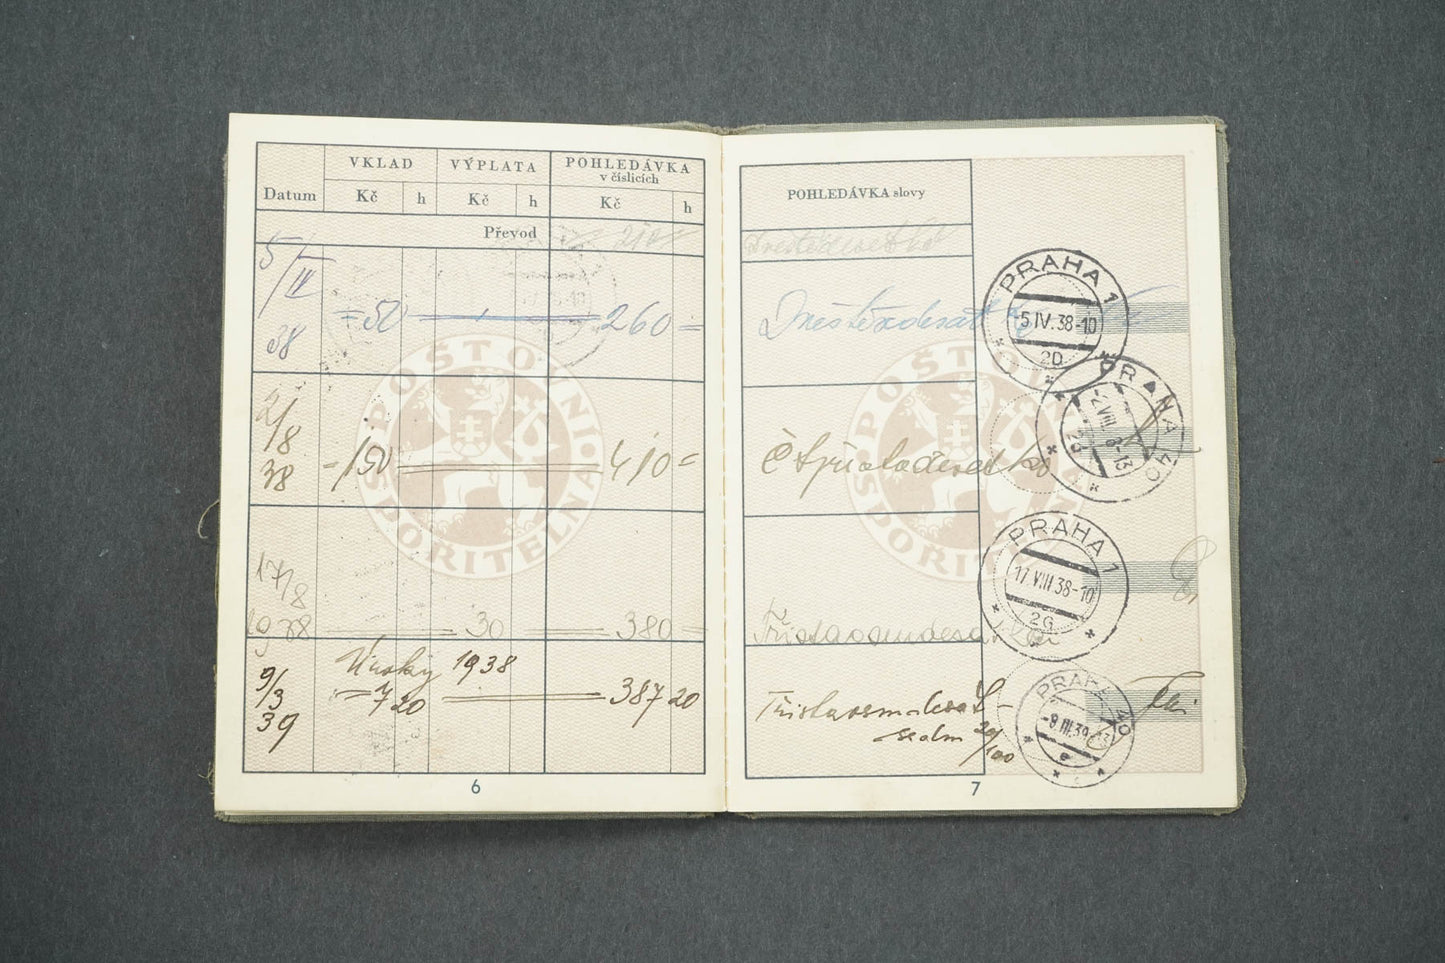 Datum VKLAD VÝPLATA POHLEDÁVKA
v číslicích
Kč h Kč h Kč h
Převod 210
5/IV 38 = 50 260 =
2/8 38 - 150 410 =
17/8 1938 = 30 380 =
9/3 39 Úroky 1938
= 7 20 387 20
POŠTOVNÍ
SPOŘITELNA
6
POHLEDÁVKA slovy
Dvěstědeset Kč
Dvěstěšedesát
Čtyřistadeset Kč
Třistaosmdesát
Třistaosmdesát
sedm 20/100
POŠTOVNÍ
SPOŘITELNA
PRAHA 1
-5.IV.38-10
2D
PRAHA
-2.VIII 8-13
PRAHA 1
17.VIII.38-10
2G
PRAHA
-9.III.39
e
7